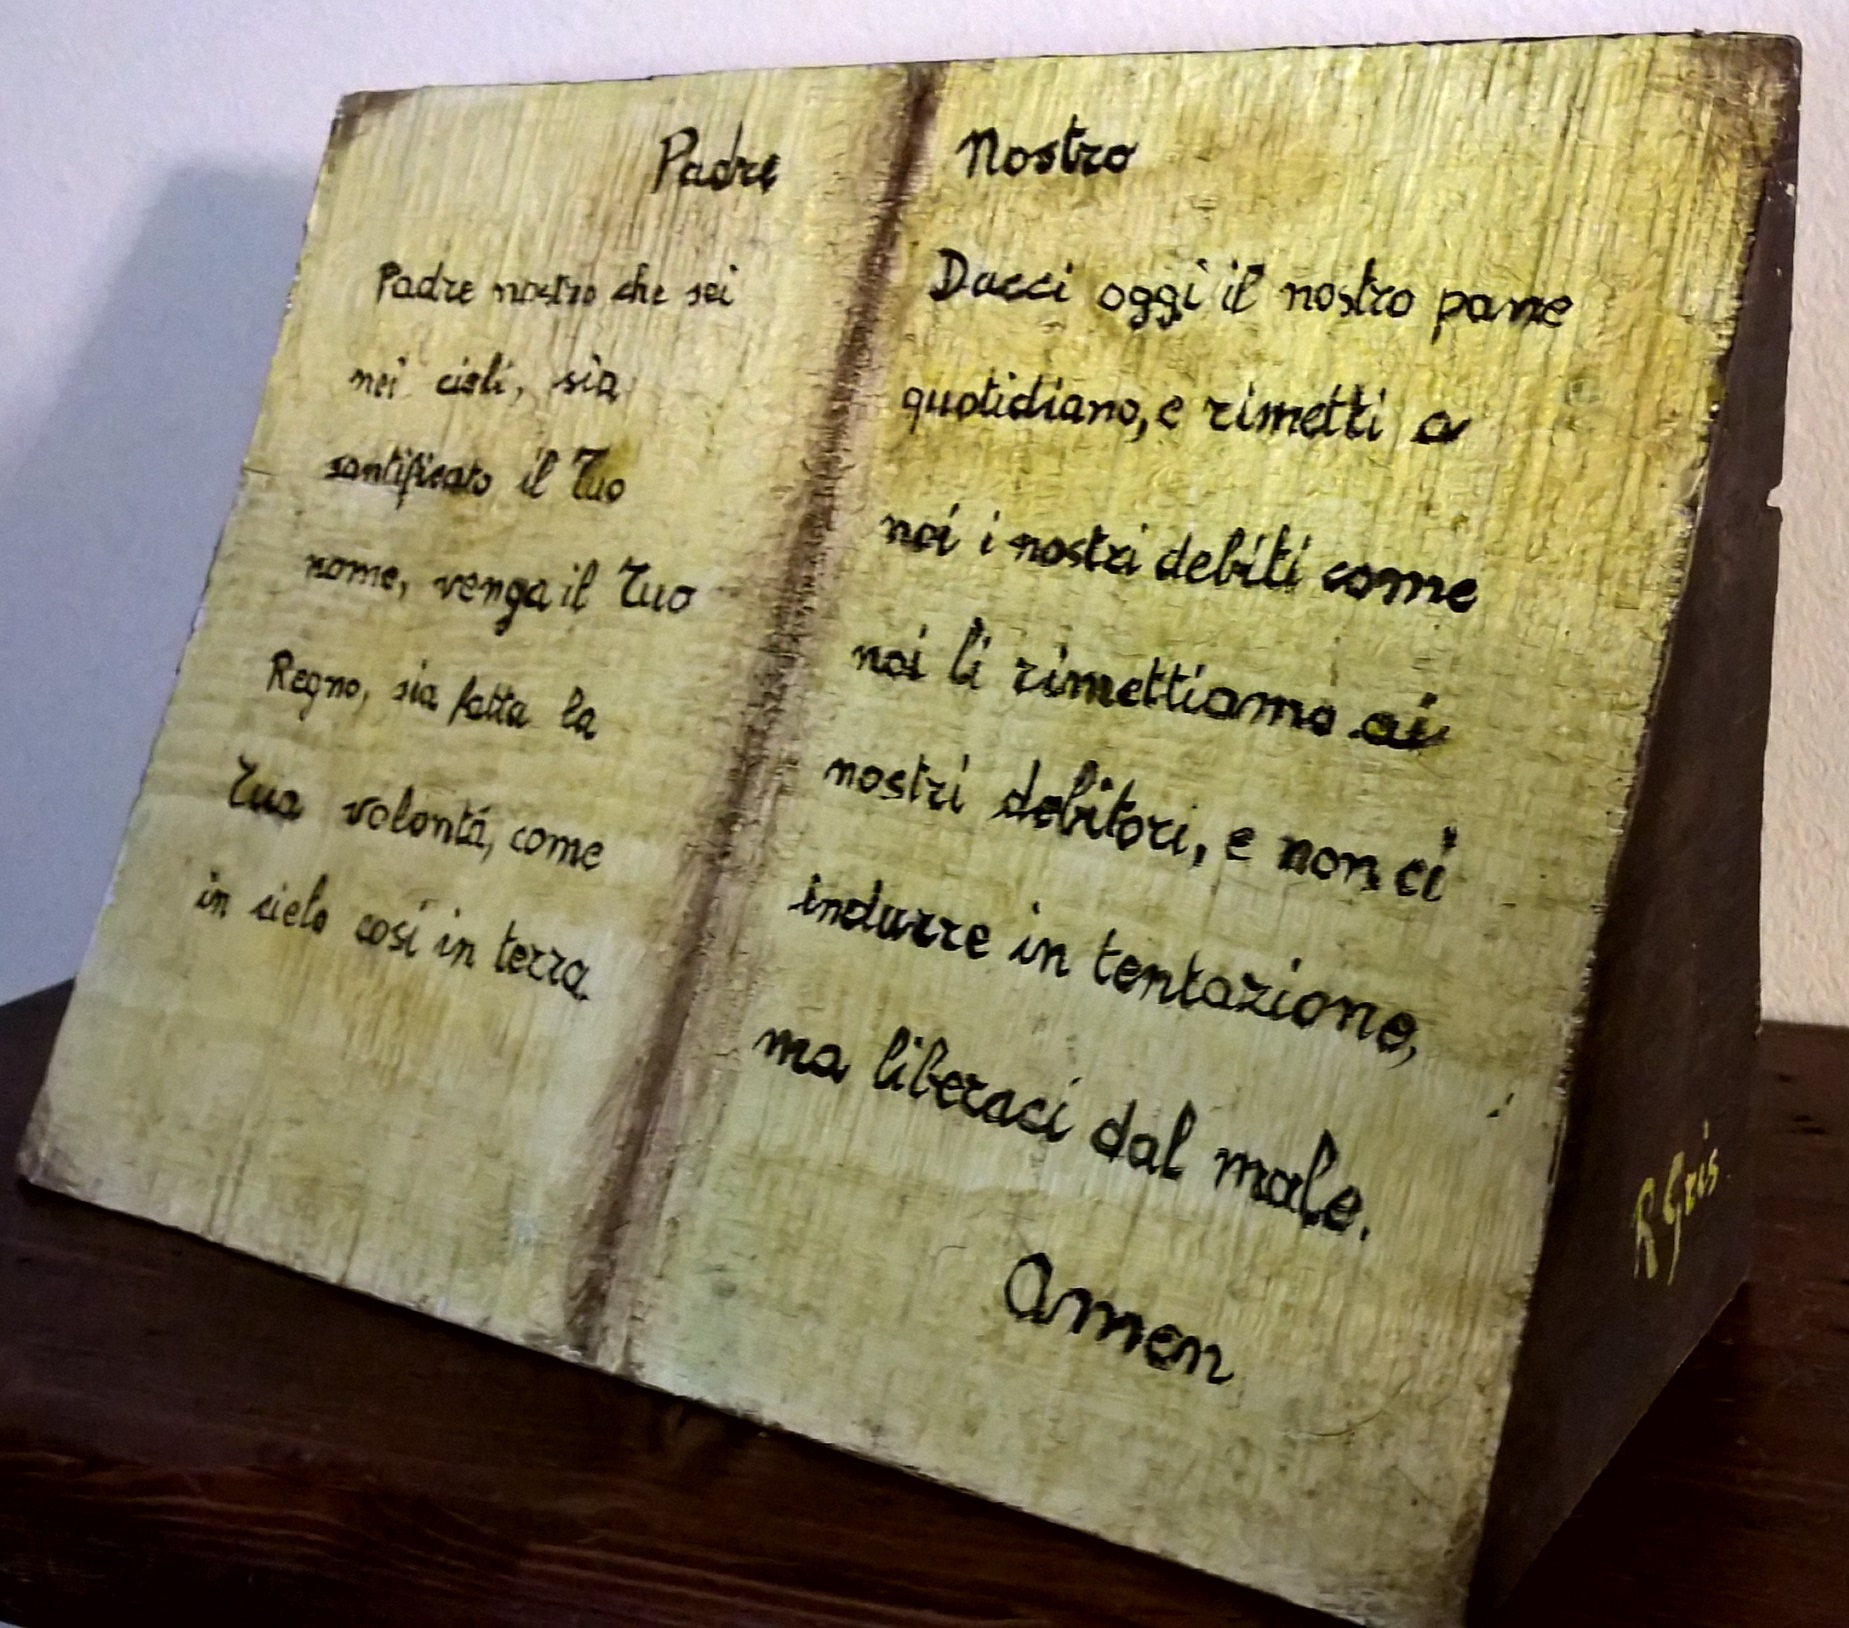 Padre Nostro
Padre nostro che sei
nei cieli, sia
santificato il Tuo
nome, venga il Tuo
Regno, sia fatta la
Tua volontá, come
in cielo cosí in terra.
Dacci oggi il nostro pane
quotidiano, e rimetti a
noi i nostri debiti come
noi li rimettiamo ai
nostri debitori, e non ci
indurre in tentazione,
ma liberaci dal male.
Amen
R Gris